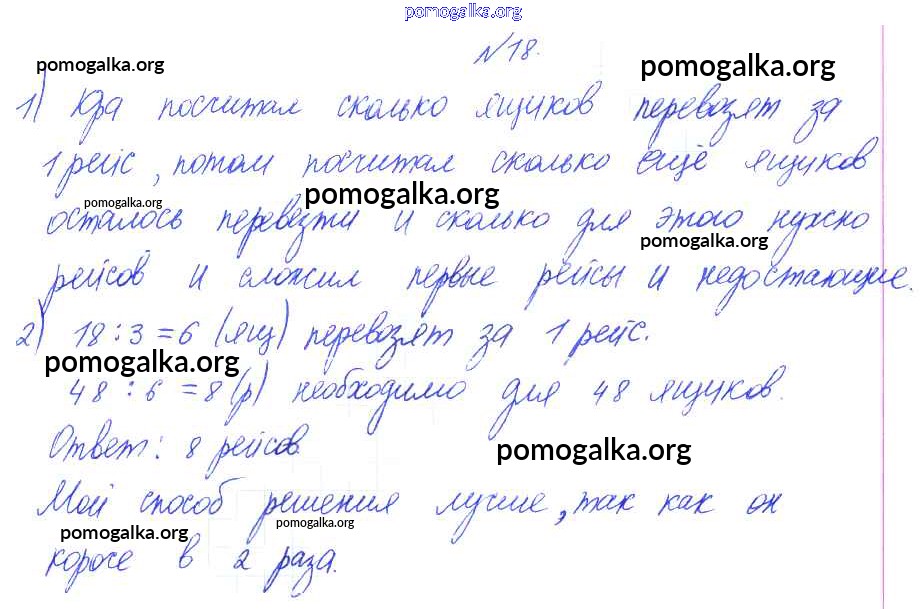 pomogalka.org
№18.
pomogalka.org
pomogalka.org
1) Юра посчитал сколько ящиков перевозят за
1 рейс, потом посчитал сколько ещё ящиков
pomogalka.org
pomogalka.org
осталось перевезти и сколько для этого нужно
pomogalka.org
рейсов и сложил первые рейсы и недостающие.
2) 18:3=6 (ящ) перевозят за 1 рейс.
pomogalka.org
48:6=8(р) необходимо для 48 ящиков.
Ответ: 8 рейсов.
pomogalka.org
Мой способ решения лучше, так как он
pomogalka.org
pomogalka.org
короче в 2 раза.